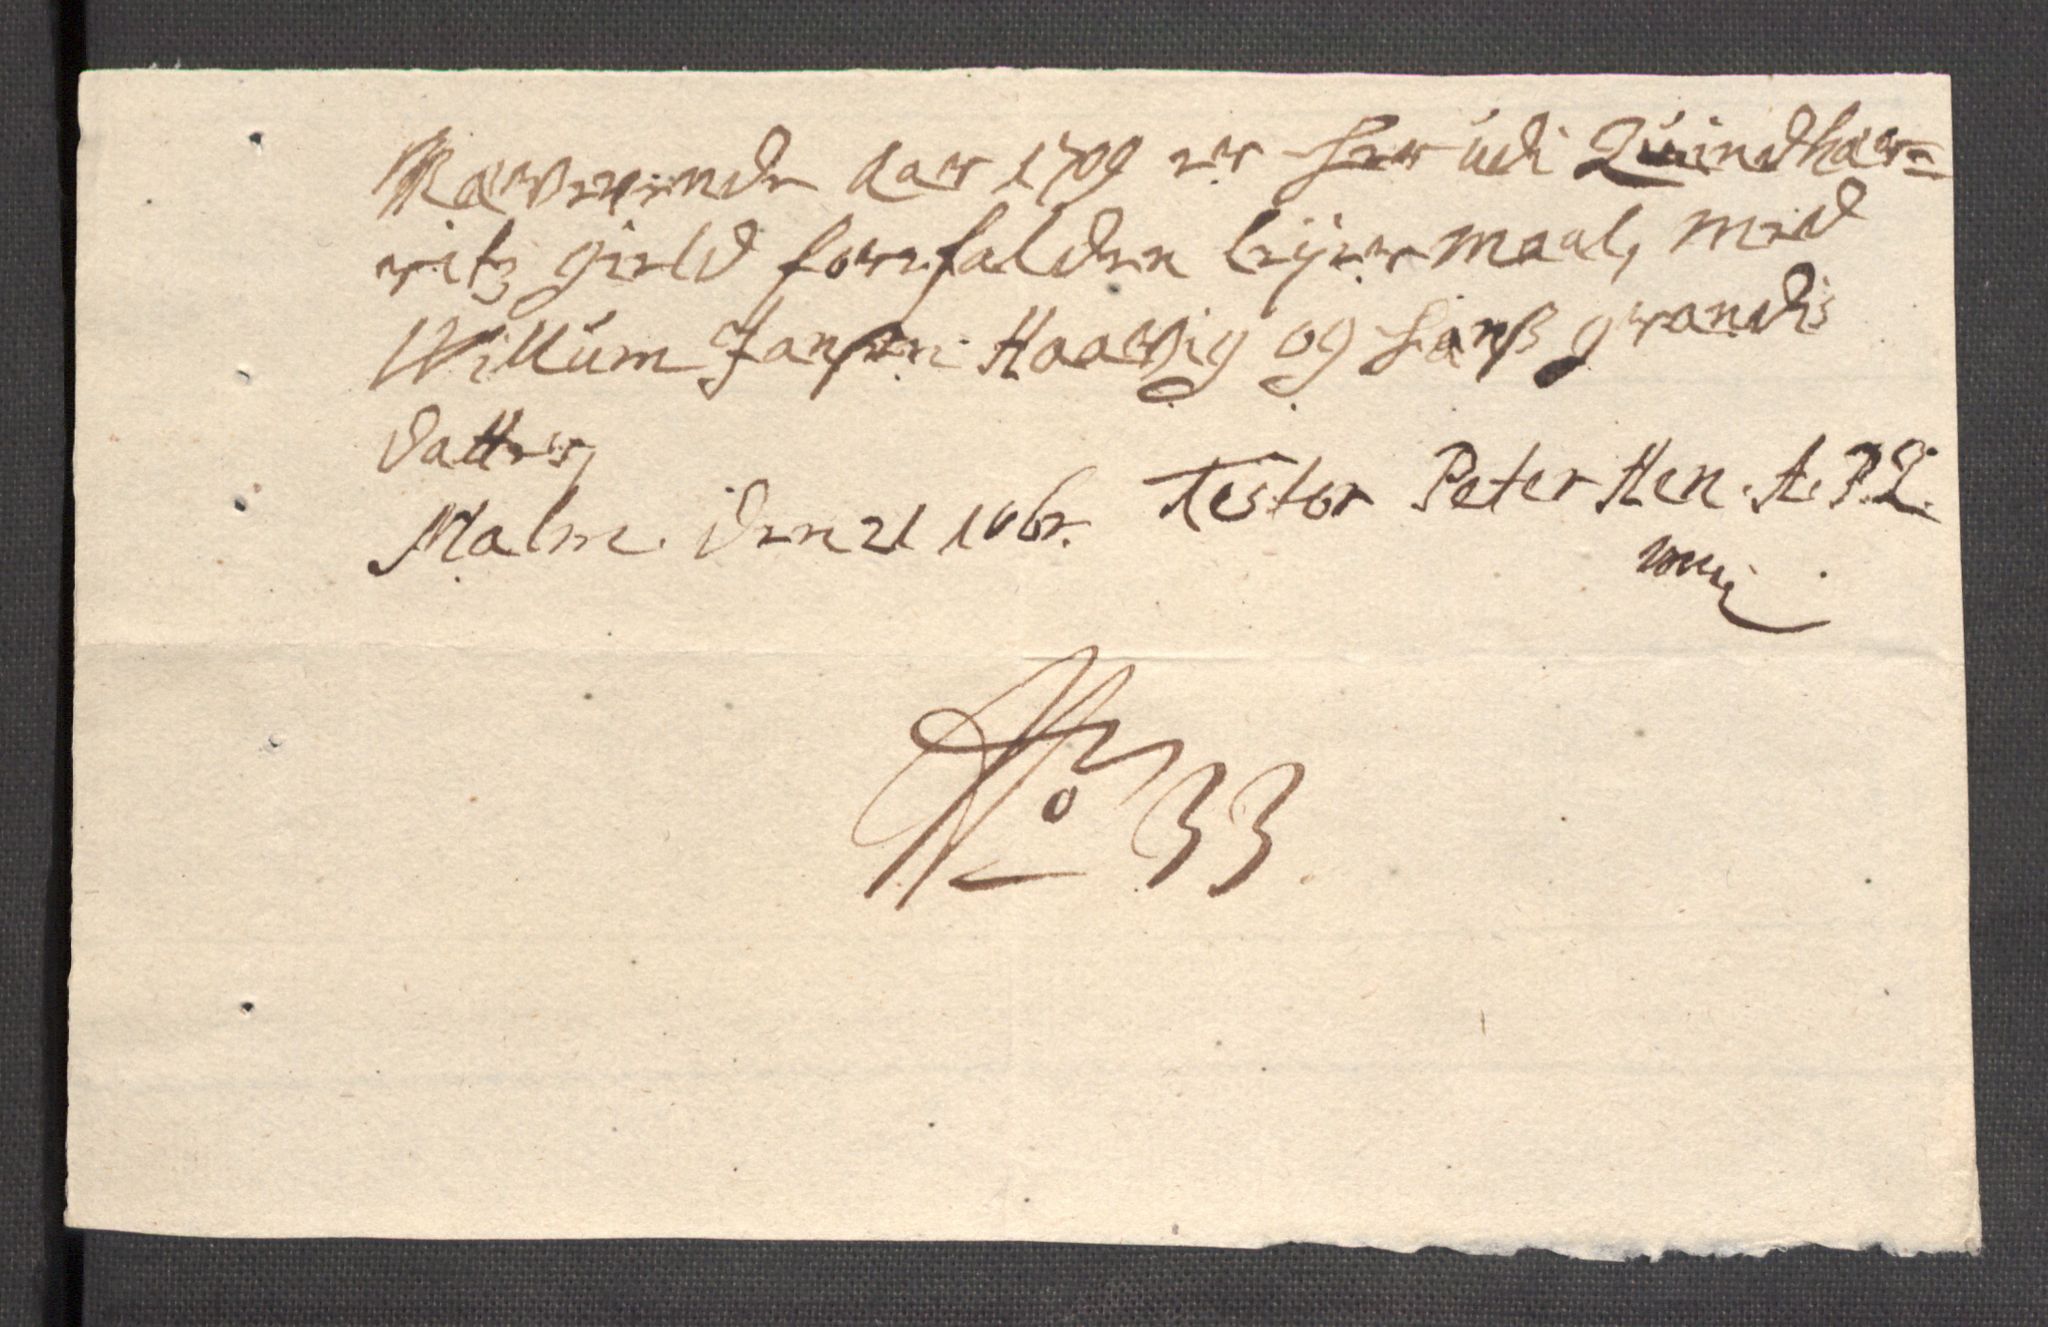 Nærværende Aar 1709 er her udi Quindhær-
ritz gield forefalden leÿermaal, med
Willum Jansen Haavig og hanß grandis
datter,
Malm. den 21 10br. Testor Peter Hen. A. P. L.
mp
No 33